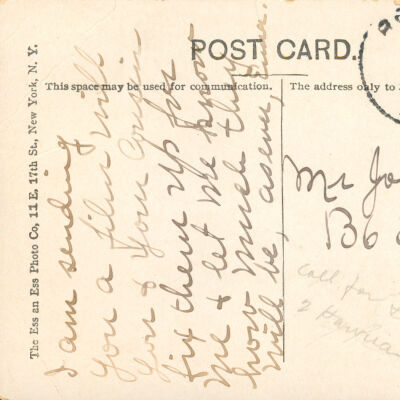 POST CARD.
This space may be used for communication.
The address only to
The Ess an Ess Photo Co, 11 E. 17th St., New York, N. Y.
I am sending
you a film will
you & your cousin
fix them up for
me & let me know
how much they
will be,
Mr Jo
Bo
Call for
2